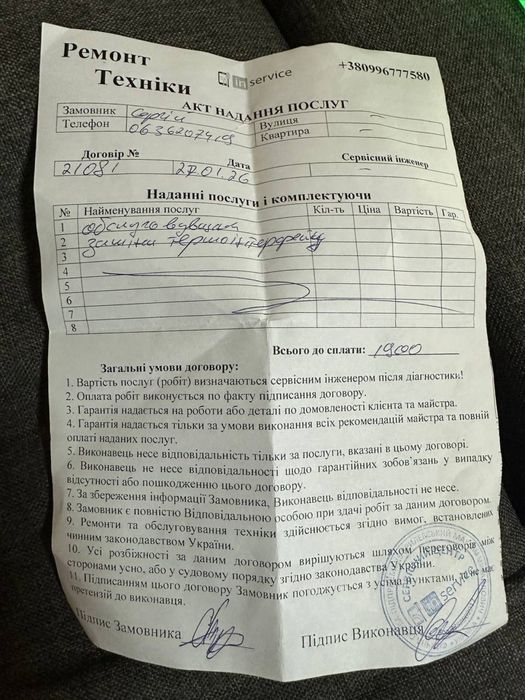 Ремонт Техніки
in service
+380996777580
АКТ НАДАННЯ ПОСЛУГ
Замовник Сергій Вулиця –
Телефон 0636207419 Квартира –
Договір № Дата Сервісний інженер
21081 27.01.26 –
Надання послуги і комплектуючи
№ Найменування послуг Кіл-ть Ціна Вартість Гар.
1 обслуговування
2 заміна термоінтерфейсу
3
4
5
6
7
8
Всього до сплати: 1900
Загальні умови договору:
1. Вартість послуг (робіт) визначаються сервісним інженером після діагностики!
2. Оплата робіт виконується по факту підписання договору.
3. Гарантія надається на роботи або деталі по домовленості клієнта та майстра.
4. Гарантія надається тільки за умови виконання всіх рекомендацій майстра та повній
оплаті наданих послуг.
5. Виконавець несе відповідальність тільки за послуги, вказані в цьому договорі.
6. Виконавець не несе відповідальності щодо гарантійних зобов'язань у випадку
відсутності або пошкодженню цього договору.
7. За збереження інформації Замовника, Виконавець відповідальності не несе.
8. Замовник є повністю Відповідальною особою при здачі робіт за даним договором.
9. Ремонти та обслуговування техніки здійснюється згідно вимог, встановлених
чинним законодавством України.
10. Усі розбіжності за даним договором вирішуються шляхом переговорів між
сторонами усно, або у судовому порядку згідно законодавства України.
11. Підписанням цього договору Замовник погоджується з усіма пунктами, та не має
претензій до виконавця.
Підпис Замовника Підпис Виконавця
СЕРВІСНИЙ ЦЕНТР
in service